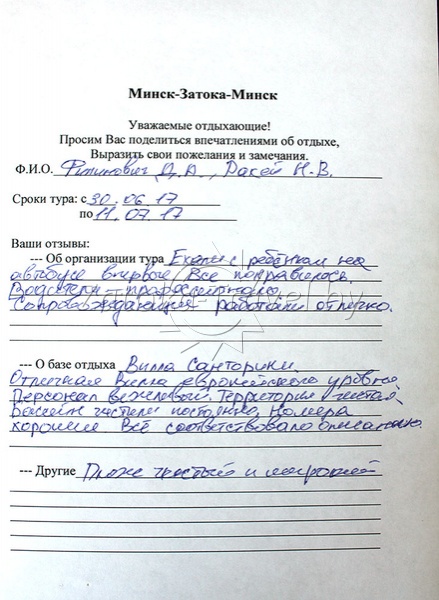 Минск-Затока-Минск
Уважаемые отдыхающие!
Просим Вас поделиться впечатлениями об отдыхе,
Выразить свои пожелания и замечания.
Ф.И.О. Д.А., Н.В.
Сроки тура: с 30.06.17
по 11.07.17
Ваши отзывы:
--- Об организации тура Ехали с ребёнком на
автобусе впервые. Все понравилось.
Водители – профессионалы.
Сопровождающия работали отлично.
--- О базе отдыха Вилла Санторини.
Отличная Вилла европейского уровня.
Персонал вежливый. Территория чистая,
бассейн чистили постоянно, номера
хорошие. Всё соответствовало описанию.
--- Другие Пляж чистый и широкий